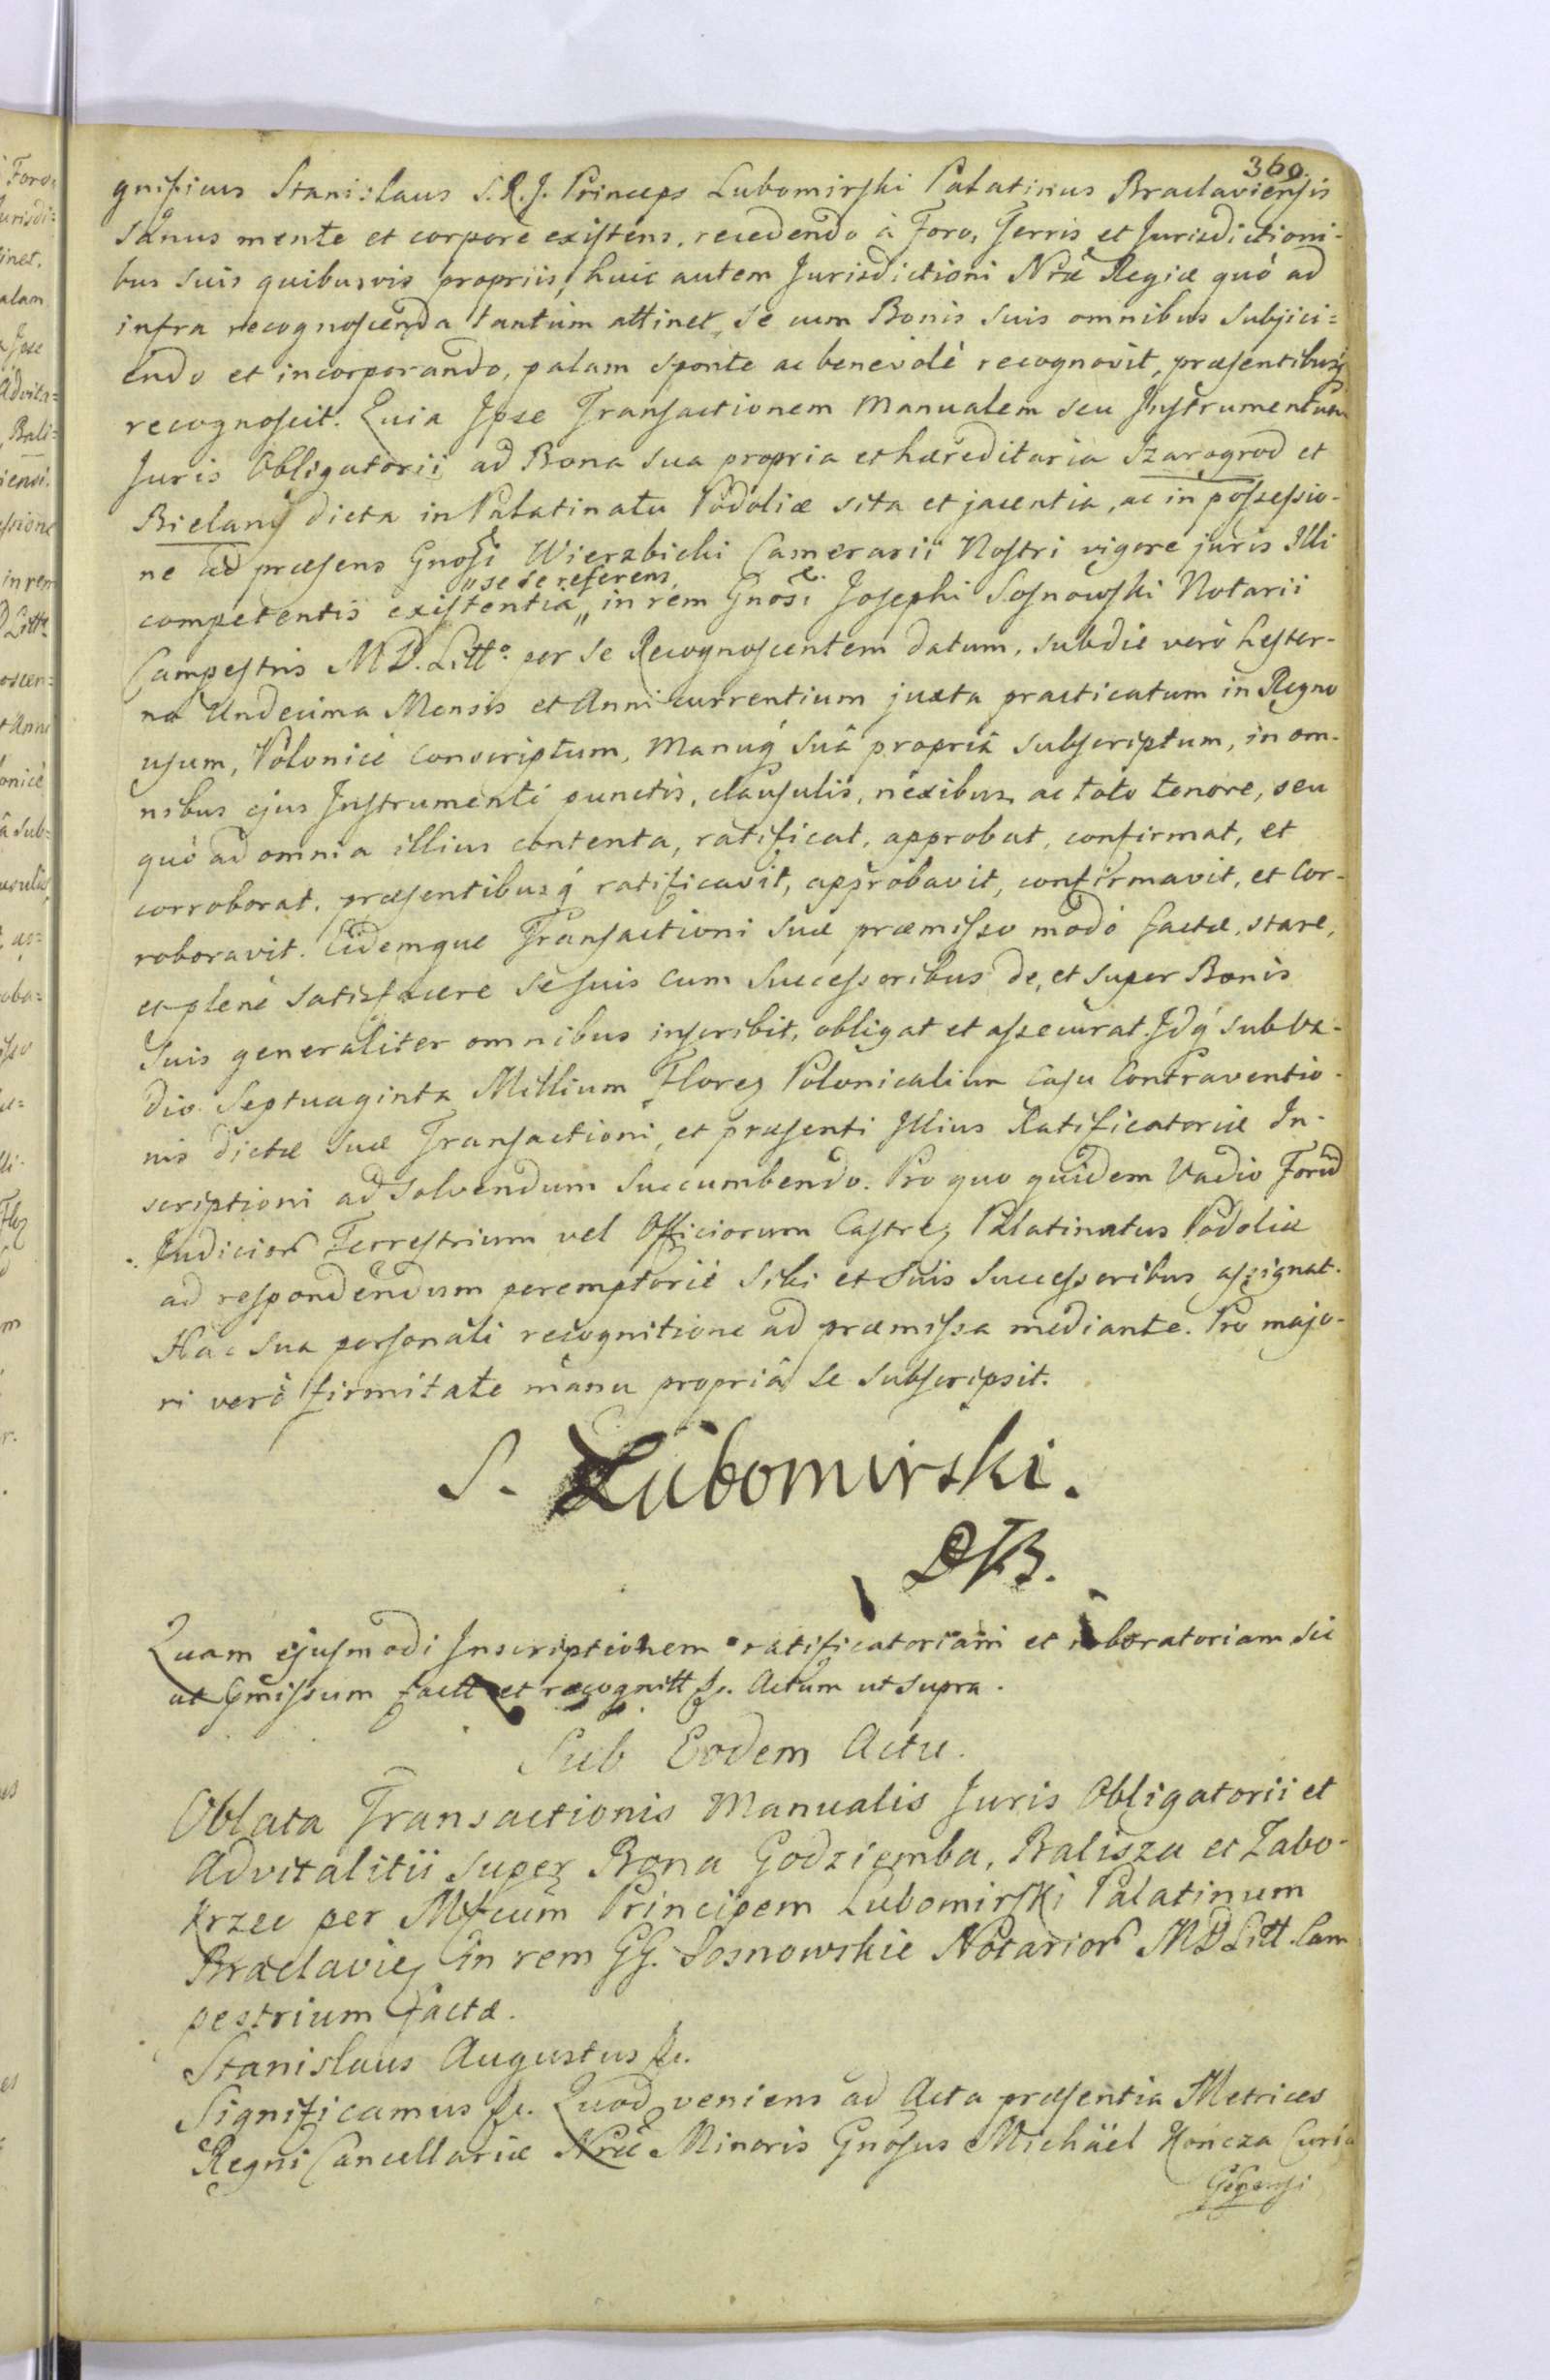 360.
gnificus Stanislaus S. R. J. Princeps Lubomirski Palatinus Braclaviensis
Sanus mente et corpore existens, recedendo à Foro, Terris et Jurisdictioni-
bus suis quibusvis propriis, huic autem Jurisdictioni Nrae Regiae quò ad
infra recognoscenda tantùm attinet, Se cum Bonis suis omnibus subjici=
endo et incorporando, palam sponte ac benevolè recognovit, praesentibusq́
recognoscit. Quia Ipse Transactionem Manualem seu Instrumentum
Juris Obligatorii ad Bona sua propria et haereditaria Szarogrod et
Bielany dicta in Palatinatu Podoliae sita et jacentia, ac in possessio-
ne ad praesens Gnosi Wierzbicki Camerarii Nostri vigore juris Illi
„se se referens
competentis existentia „ in rem Gnosi Josephi Sosnowski Notarii
Campestris M. D. Litto. per se Recognoscentem datum, sub die verò hester-
na Undecima Mensis et Anni currentium juxta practicatum in Regno
usum, Polonicè conscriptum, Manuq́ suâ propriâ subscriptum, in om-
nibus ejus Instrumenti punctis, clausulis, nexibus, ac toto tenore, seu
quò ad omnia illius contenta, ratificat, approbat, confirmat, et
corroborat, praesentibusq́ ratificavit, approbavit, confirmavit, et Cor-
roboravit. Eidemque Transactioni suae praemisso modo factae, stare,
et plenè satisfacere se suis cum Successoribus de, et super Bonis
Suis generaliter omnibus inscribit, obligat et assecurat. Idq́ sub Va-
dio Septuaginta Millium Floreɜ Polonicalium casu Contraventio-
nis dictae suae Transactioni, et praesenti Illius Ratificatoriae In-
scriptioni ad solvendum succumbendo. Pro quo quidem Vadio Forum
Judicior Terrestrium vel Officiorum Castreɜ Palatinatus Podoliae
ad respondendum peremptoriè sibi et suis Successoribus assignat.
Hac sua personali recognitione ad praemissa mediante. Pro majo-
ri verò firmitate manu propriâ se subscripsit.
S. Lubomirski.
Quam ejusmodi Inscriptionem ratificatoriam et roboratoriam sic
ut pmissum factt et recognitt &c. Actum ut supra.
Sub Eodem Actu.
Oblata Transactionis Manualis Juris Obligatorii et
Advitalitii super Bona Godziemba, Balisza et Zabo-
krzec per Mfcum Principem Lubomirski Palatinum
Braclavieɜ in rem GG. Sosnowskie Notarior M D Litt. Cam
pestrium factae.
Stanislaus Augustus &c.
Significamus &c. Quod veniens ad Acta praesentia Metrices
Regni Cancellariae Nrae Minoris Gnosus Michäel Hończa Curiae